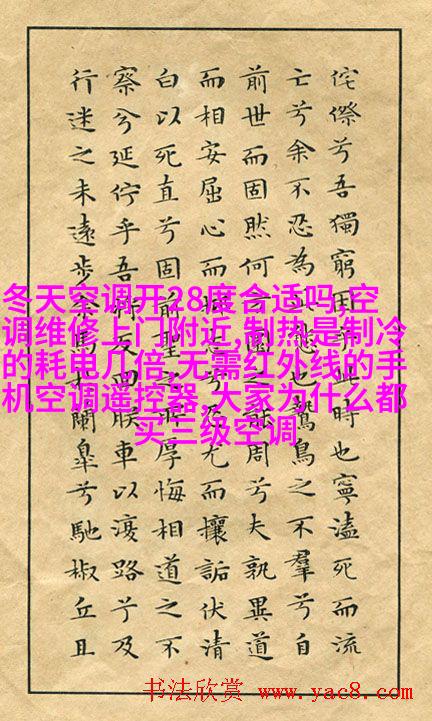 侘傺兮吾獨窮困乎此時也寧溘死而流
亡兮余不忍為此態也鷙鳥之不羣兮自
前世而固然何方圜之能周兮夫孰異道
而相安屈心而抑志兮忍尤而攘詬伏清
白以死直兮固前聖之所厚悔相道之不
察兮延佇乎吾將反回朕車以復路兮及
行迷之未遠步余馬於蘭臯兮馳椒丘且
冬天空调开28度合适吗,空
调维修上门附近,制热是制冷
的耗电几倍,无需红外线的手
机空调遥控器,大家为什么都
买三级空调
书法欣赏 www.yac8.com